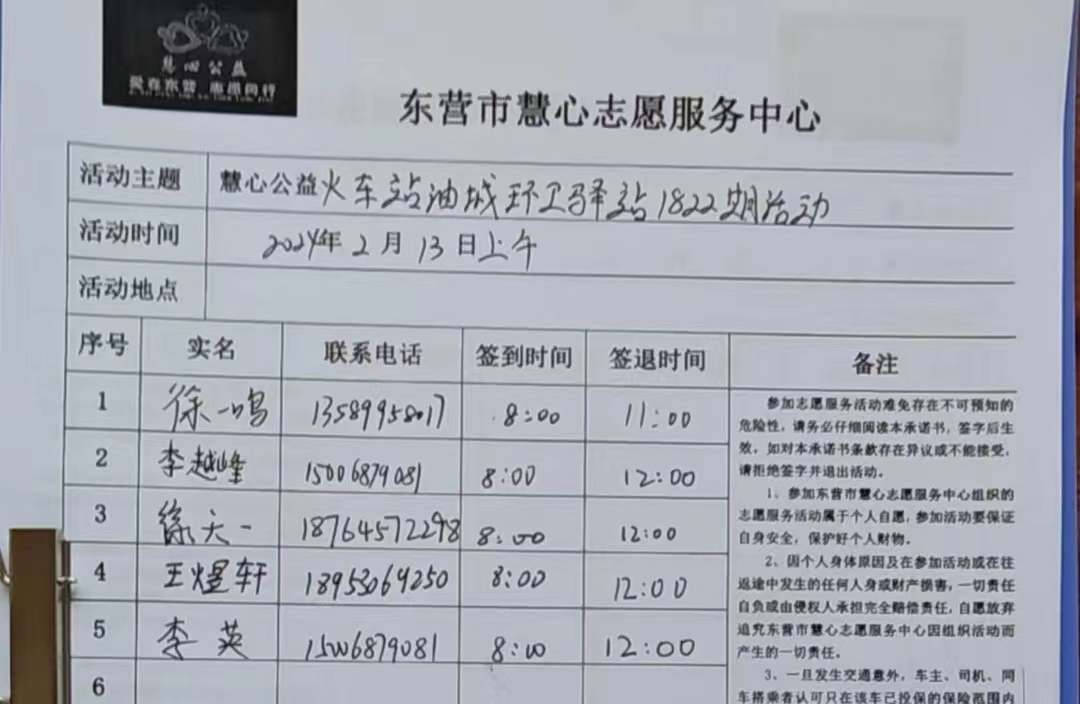 慧心公益
爱在东营 志愿同行
东营市慧心志愿服务中心
活动主题 慧心公益火车站油城环卫驿站1822期活动
活动时间 2024年2月13日上午
活动地点
序号 实名 联系电话 签到时间 签退时间 备注
1 徐一鸣 13589958017 8:00 11:00
2 李越峰 15006879081 8:00 12:00
3 徐天一 18764572298 8:00 12:00
4 王煜轩 18953069250 8:00 12:00
5 李英 15006879081 8:00 12:00
6
参加志愿服务活动难免存在不可预知的
危险性，请务必仔细阅读本承诺书，签字后生
效。如对本承诺书条款存在异议或不能接受，
请拒绝签字并退出活动。
1、参加东营市慧心志愿服务中心组织的
志愿服务活动属于个人自愿，参加活动要保证
自身安全，保护好个人财物。
2、因个人身体原因及在参加活动或在往
返途中发生的任何人身或财产损害，一切责任
自负或由侵权人承担完全赔偿责任，自愿放弃
追究东营市慧心志愿服务中心因组织活动而
产生的一切责任。
3、一旦发生交通意外，车主、司机、同
车搭乘者认可只在该车已投保的保险范围内